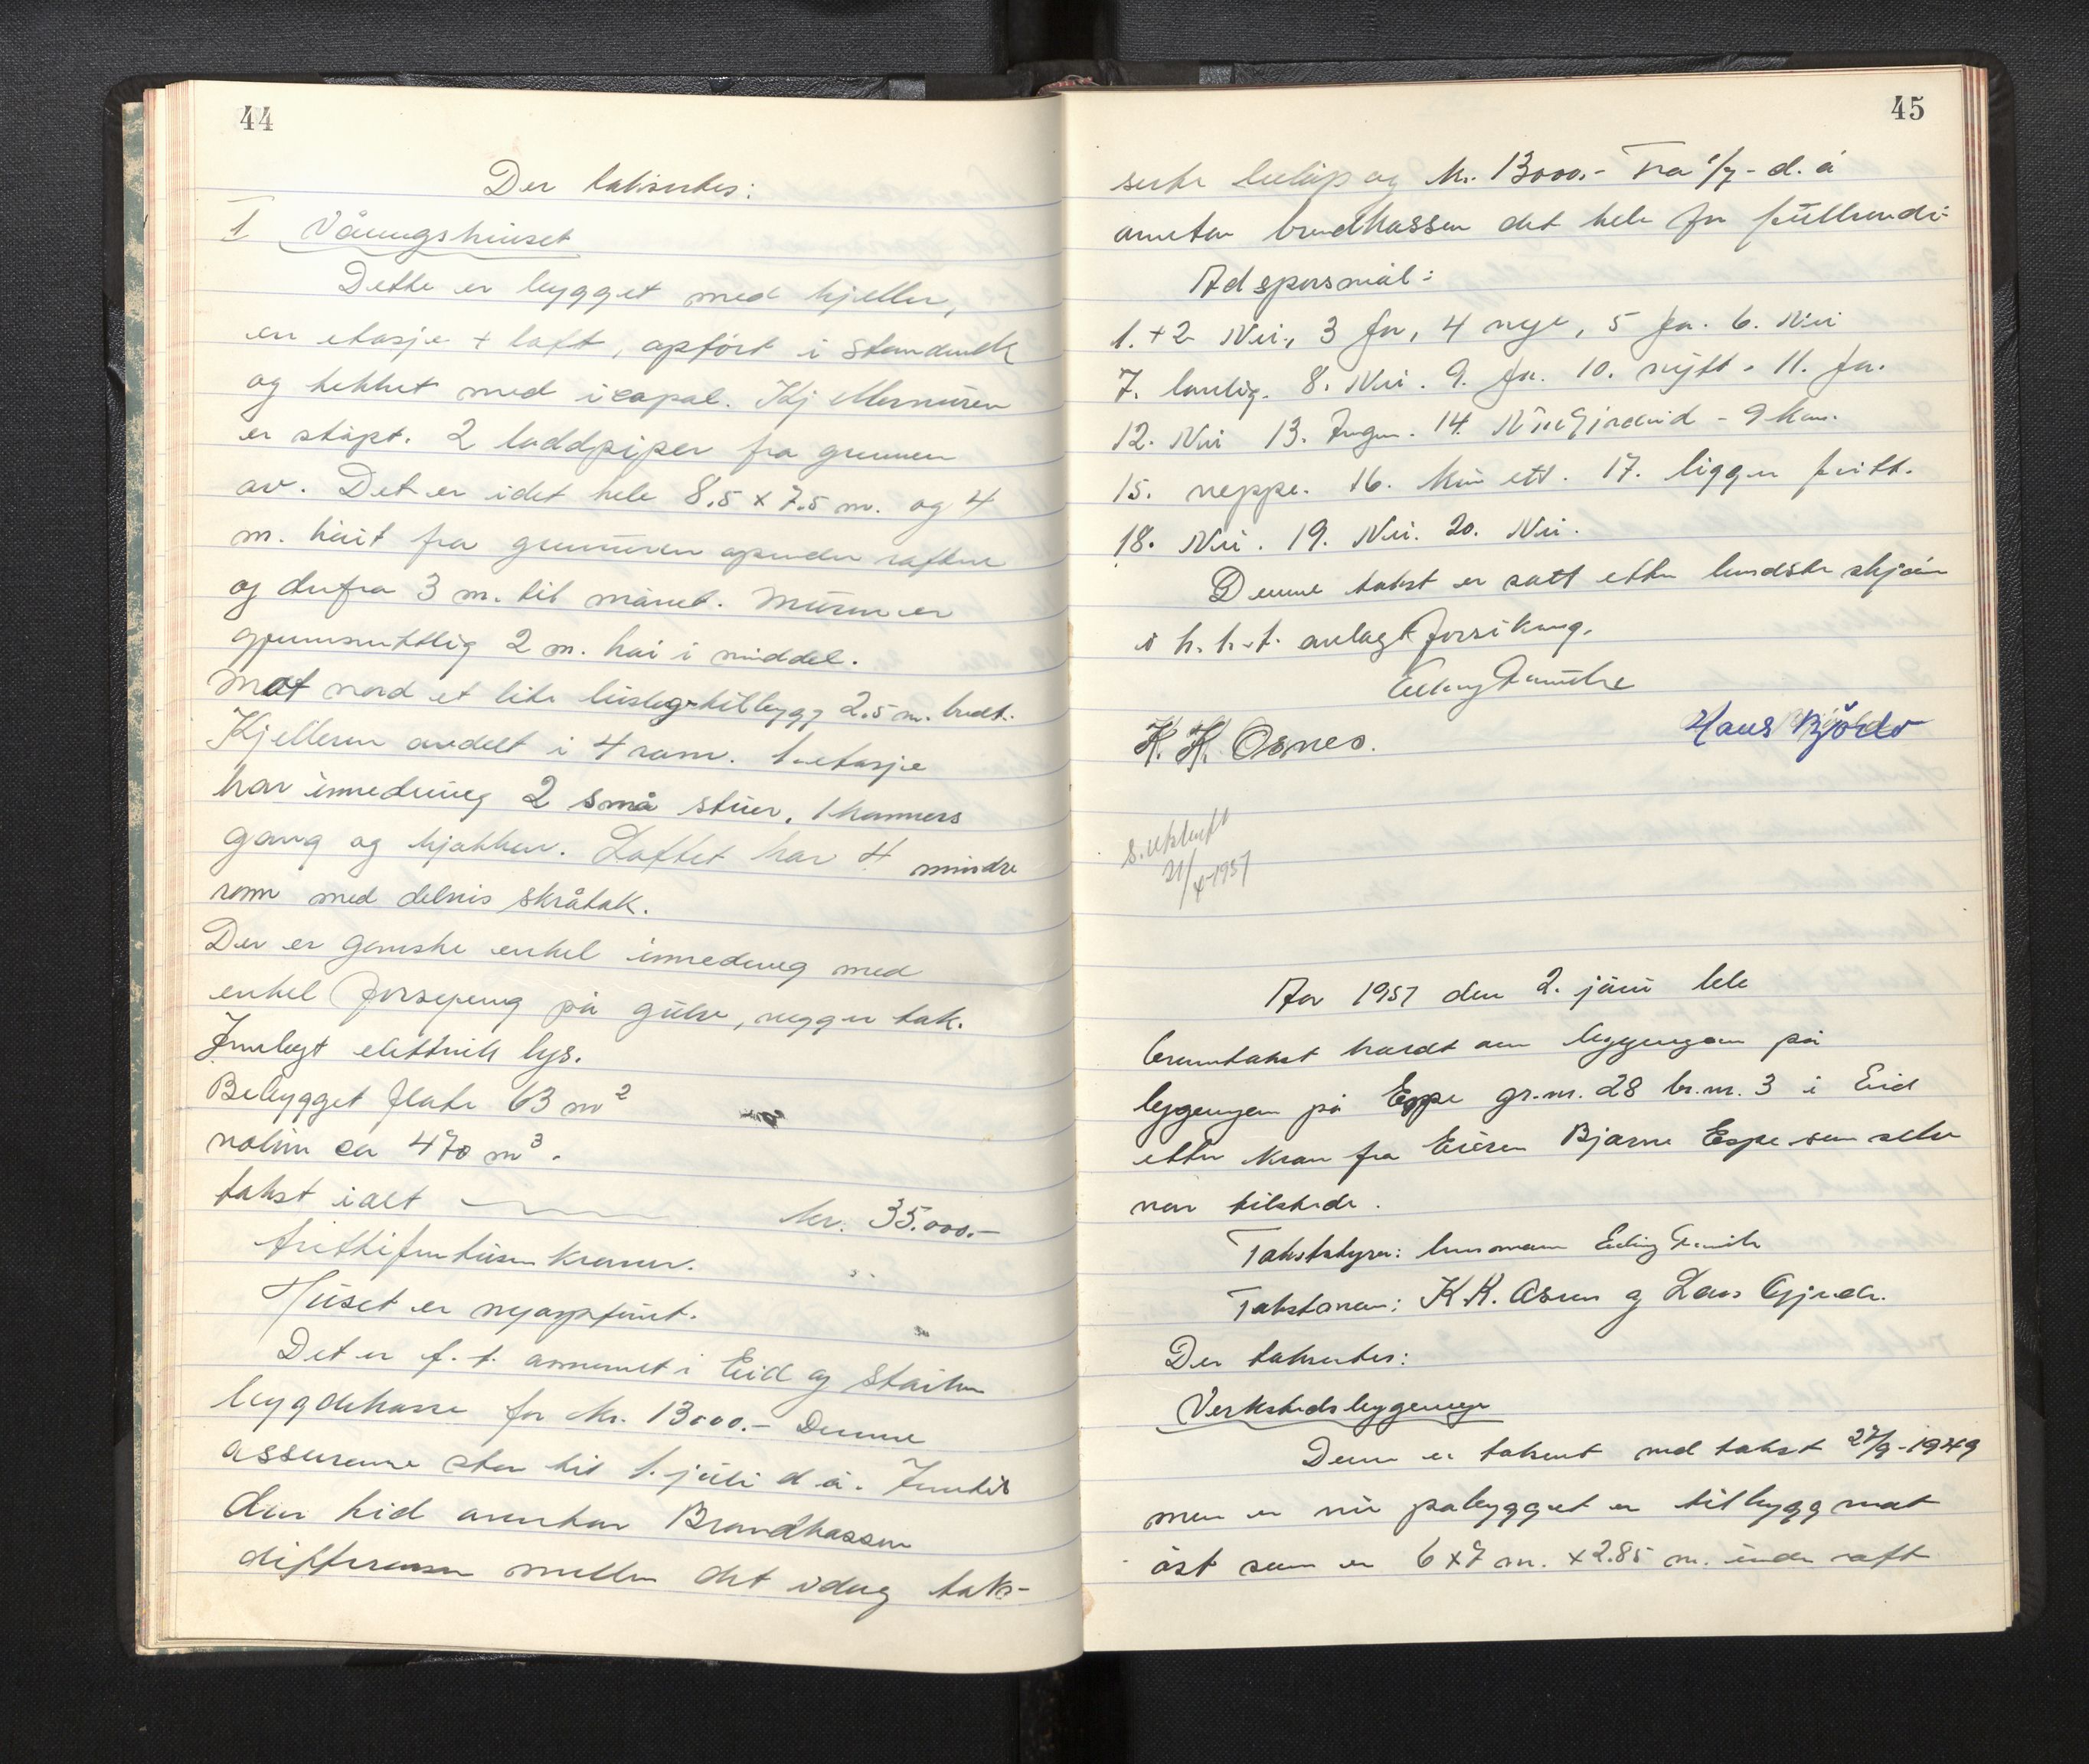 44
Der takseres:
I Våningshuset
Dette er bygget med kjeller,
en etasje + loft, opført i stenderverk
og tekket med icopal. Kjellermuren
er støpt. 2 loddpiper fra grunnen
av. Det er idet hele 8,5 x 7.5 m. og 4
m. høit fra grunnmuren og under raftene
og derfra 3 m. til mønet. Muren er
gjennomsnittlig 2 m. høi i middel.
Mot nord et lite bislagstilbygg 2,5 m. bredt.
Kjelleren avdelt i 4 rom. 1 etasje
har innredning 2 små stuer, 1 kammers
gang og kjøkken. Loftet har 4 mindre
rom med delvis skråtak.
Der er ganske enkel innredning med
enkel på gulv, vegger tak.
Innlagt elektrisk lys.
Bebygget flate 63 m²
volum ca 470 m³.
takst ialt kr. 35.000.-
trettifemtusen kroner.
Huset er nyoppført.
Det er f. t. assurert i Eid og Stårheim
bygdekasse for kr. 13000.- Denne
assuranse står til 1. juli d å. Inntil
den tid overtar Brandkassen
differansen mellem det idag tak-
45
serte beløp og kr. 13000.- Fra 1/7 - d. å
overtar brandkassen det hele for fullverdi-
Ad spørsmål:
1. + 2 Nei, 3 Ja, 4 nye, 5 Ja. 6. Nei
7. lovlig. 8. Nei. 9. Ja. 10. nytt. 11. Ja.
12. Nei 13. Ingen. 14. Nordfjordeid - 9 km.
15. neppe. 16. Kun ett. 17. ligger fritt.
18. Nei. 19. Nei. 20. Nei.
Denne takst er satt etter beste skjønn
i h. h. t. avlagt forsikring.
K. K. Osnes. Hans Bjørlo
s. utskrift
21/x-1957
År 1957 den 2. juni ble
branntakst holdt over bygningen på
bygningen på Espe gr.nr. 28 br.nr. 3 i Eid
etter krav fra Eieren Bjarne Espe som selv
var tilstede.
Takstbestyrer: lensmann Erling
Takstmenn: K K. Osnes og Lars Gjerde.
Der takseres:
Verkstedsbygning
Denne er taksert ved takst 27/9-1949
men er nu påbygget et tilbygg mot
øst som er 6 x 7 m. x 2.85 m. under raft